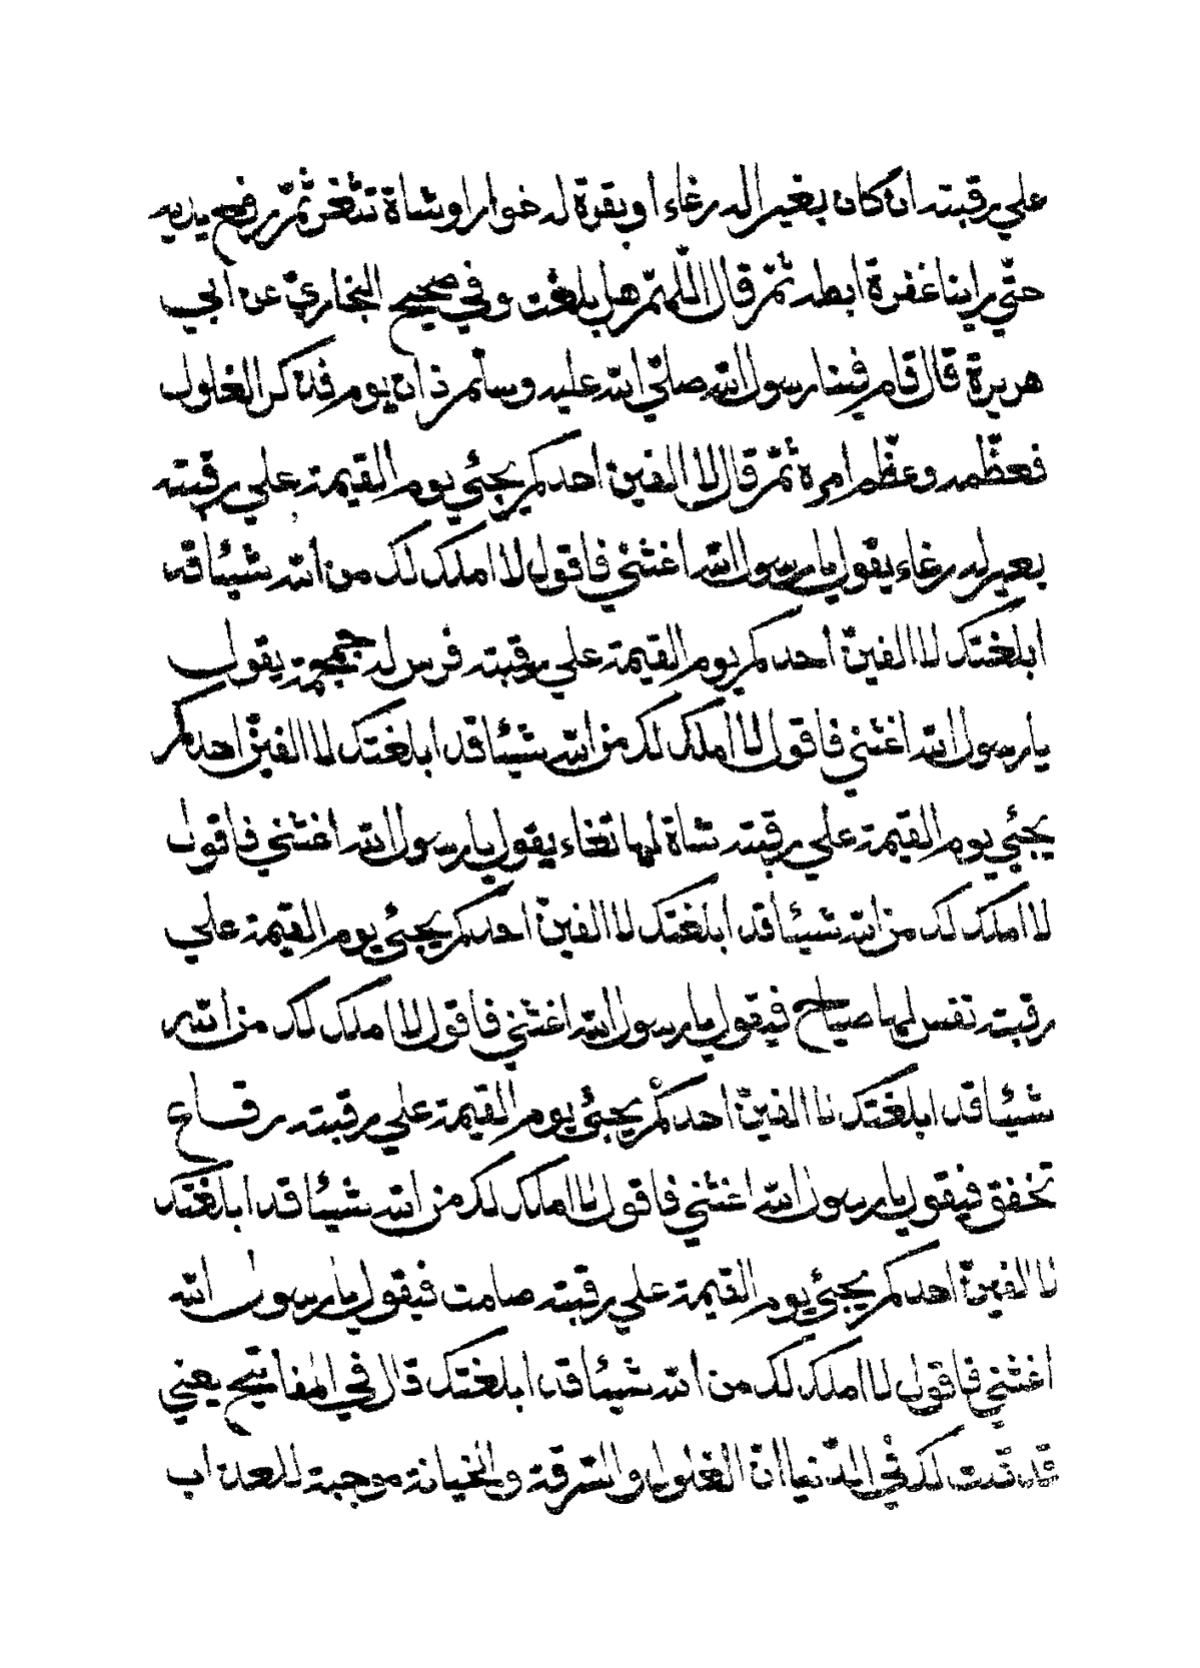 علي رقبته ان كان بغيرا له رغاء او بقرة له خوار او شاة تثغر ثمّ رفع يديه
حتّي راينا غفرة ابطه ثمّ قال اللّهمّ هل بلغت وفي صحيح البخاريّ عن ابي
هريرة قال قام فينا رسول اللّه صلّي اللّه عليه وسلّم ذات يوم فذكر الغلول
فعظّمه وعظّم امره ثمّ قال لا الفينّ احدكم يجئي يوم القيمة علي رقبته
بعير له رغاء يقول يا رسول اللّه اغثني فاقول لا املك لك من اللّه شيئا قد
ابلغتك لا الفينّ احدكم يوم القيمة علي رقبته فرس له حمحمة يقول
يا رسول اللّه اغثني فاقول لا املك لك من اللّه شيئا قد ابلغتك لا الفينّ احدكم
يجئي يوم القيمة علي رقبته شاة لها ثغاء يقول يا رسول اللّه اغثني فاقول
لا املك لك من اللّه شيئا قد ابلغتك لا الفينّ احدكم يجئي يوم القيمة علي
رقبته نفس لها صياح فيقول يا رسول اللّه اغثني فاقول لا املك لك من اللّه
شيئا قد ابلغتك لا الفينّ احدكم يجئي يوم القيمة علي رقبته رقاع
تخفق فيقول يا رسول اللّه اغثني فاقول لا املك لك من اللّه شيئا قد ابلغتك
لا الفينّ احدكم يجئي يوم القيمة علي رقبته صامت فيقول يا رسول اللّه
اغثني فاقول لا املك لك من اللّه شيئا قد ابلغتك قال في المفاتيح يعني
قد قلت لك في الدّنيا انّ الغلول والسّرقة والخيانة موجبة للعذاب